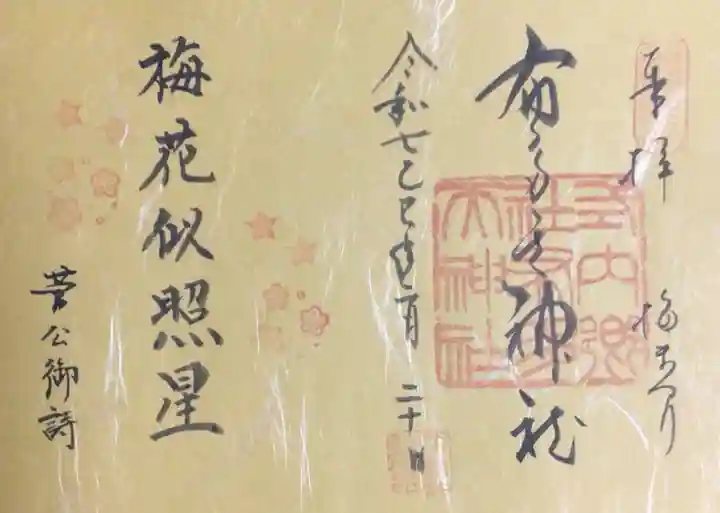 奉拝 梅まつり
布多天神社
令和七乙巳年二月二十日
梅花似照星
菅公御詩